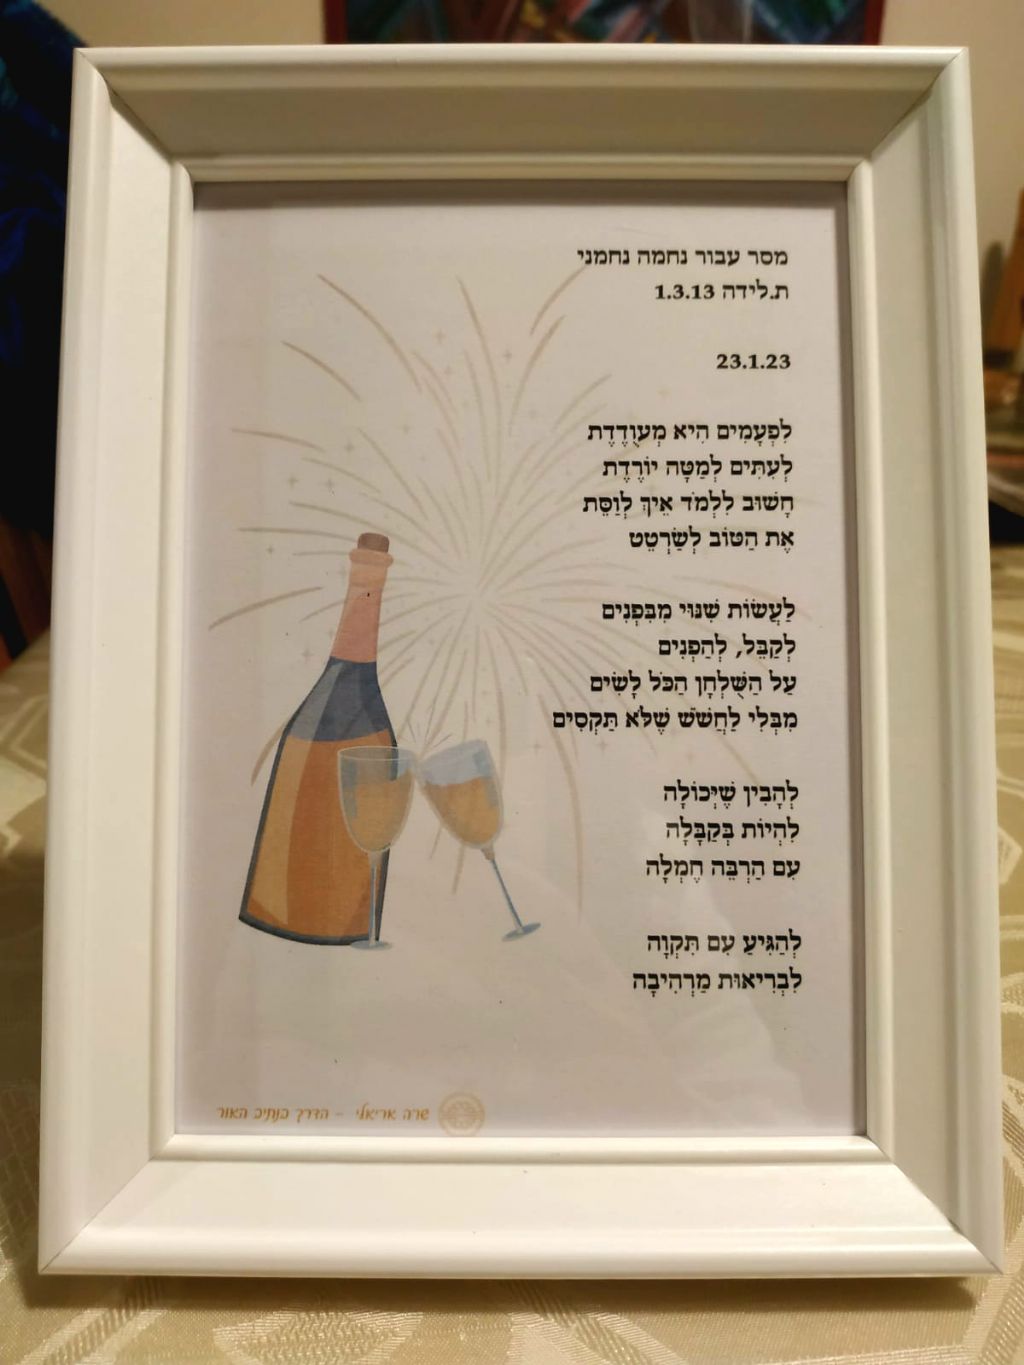 מסר עבור נחמה נחמני
ת.לידה 1.3.13
23.1.23
לִפְעָמִים הִיא מְעוּדֶדֶת
לְעִתִּים לְמַטָּה יוֹרֶדֶת
חָשׁוּב לִלְמֹד אֵיךְ לְוַסֵּת
אֶת הַטּוֹב לְשַׂרְטֵט
לַעֲשׂוֹת שִׁנּוּי מִבִּפְנִים
לְקַבֵּל, לְהַפְנִים
עַל הַשֻּׁלְחָן הַכֹּל לָשִׂים
מִבְּלִי לַחֲשֹׁשׁ שֶׁלֹּא תַּקְסִים
לְהָבִין שֶׁיְּכוֹלָה
לִהְיוֹת בְּקַבָּלָה
עִם הַרְבֵּה חֶמְלָה
לְהַגִּיעַ עִם תִּקְוָה
לִבְרִיאוּת מַרְהִיבָה
שרה אריאלי - הדרך בנתיב האור